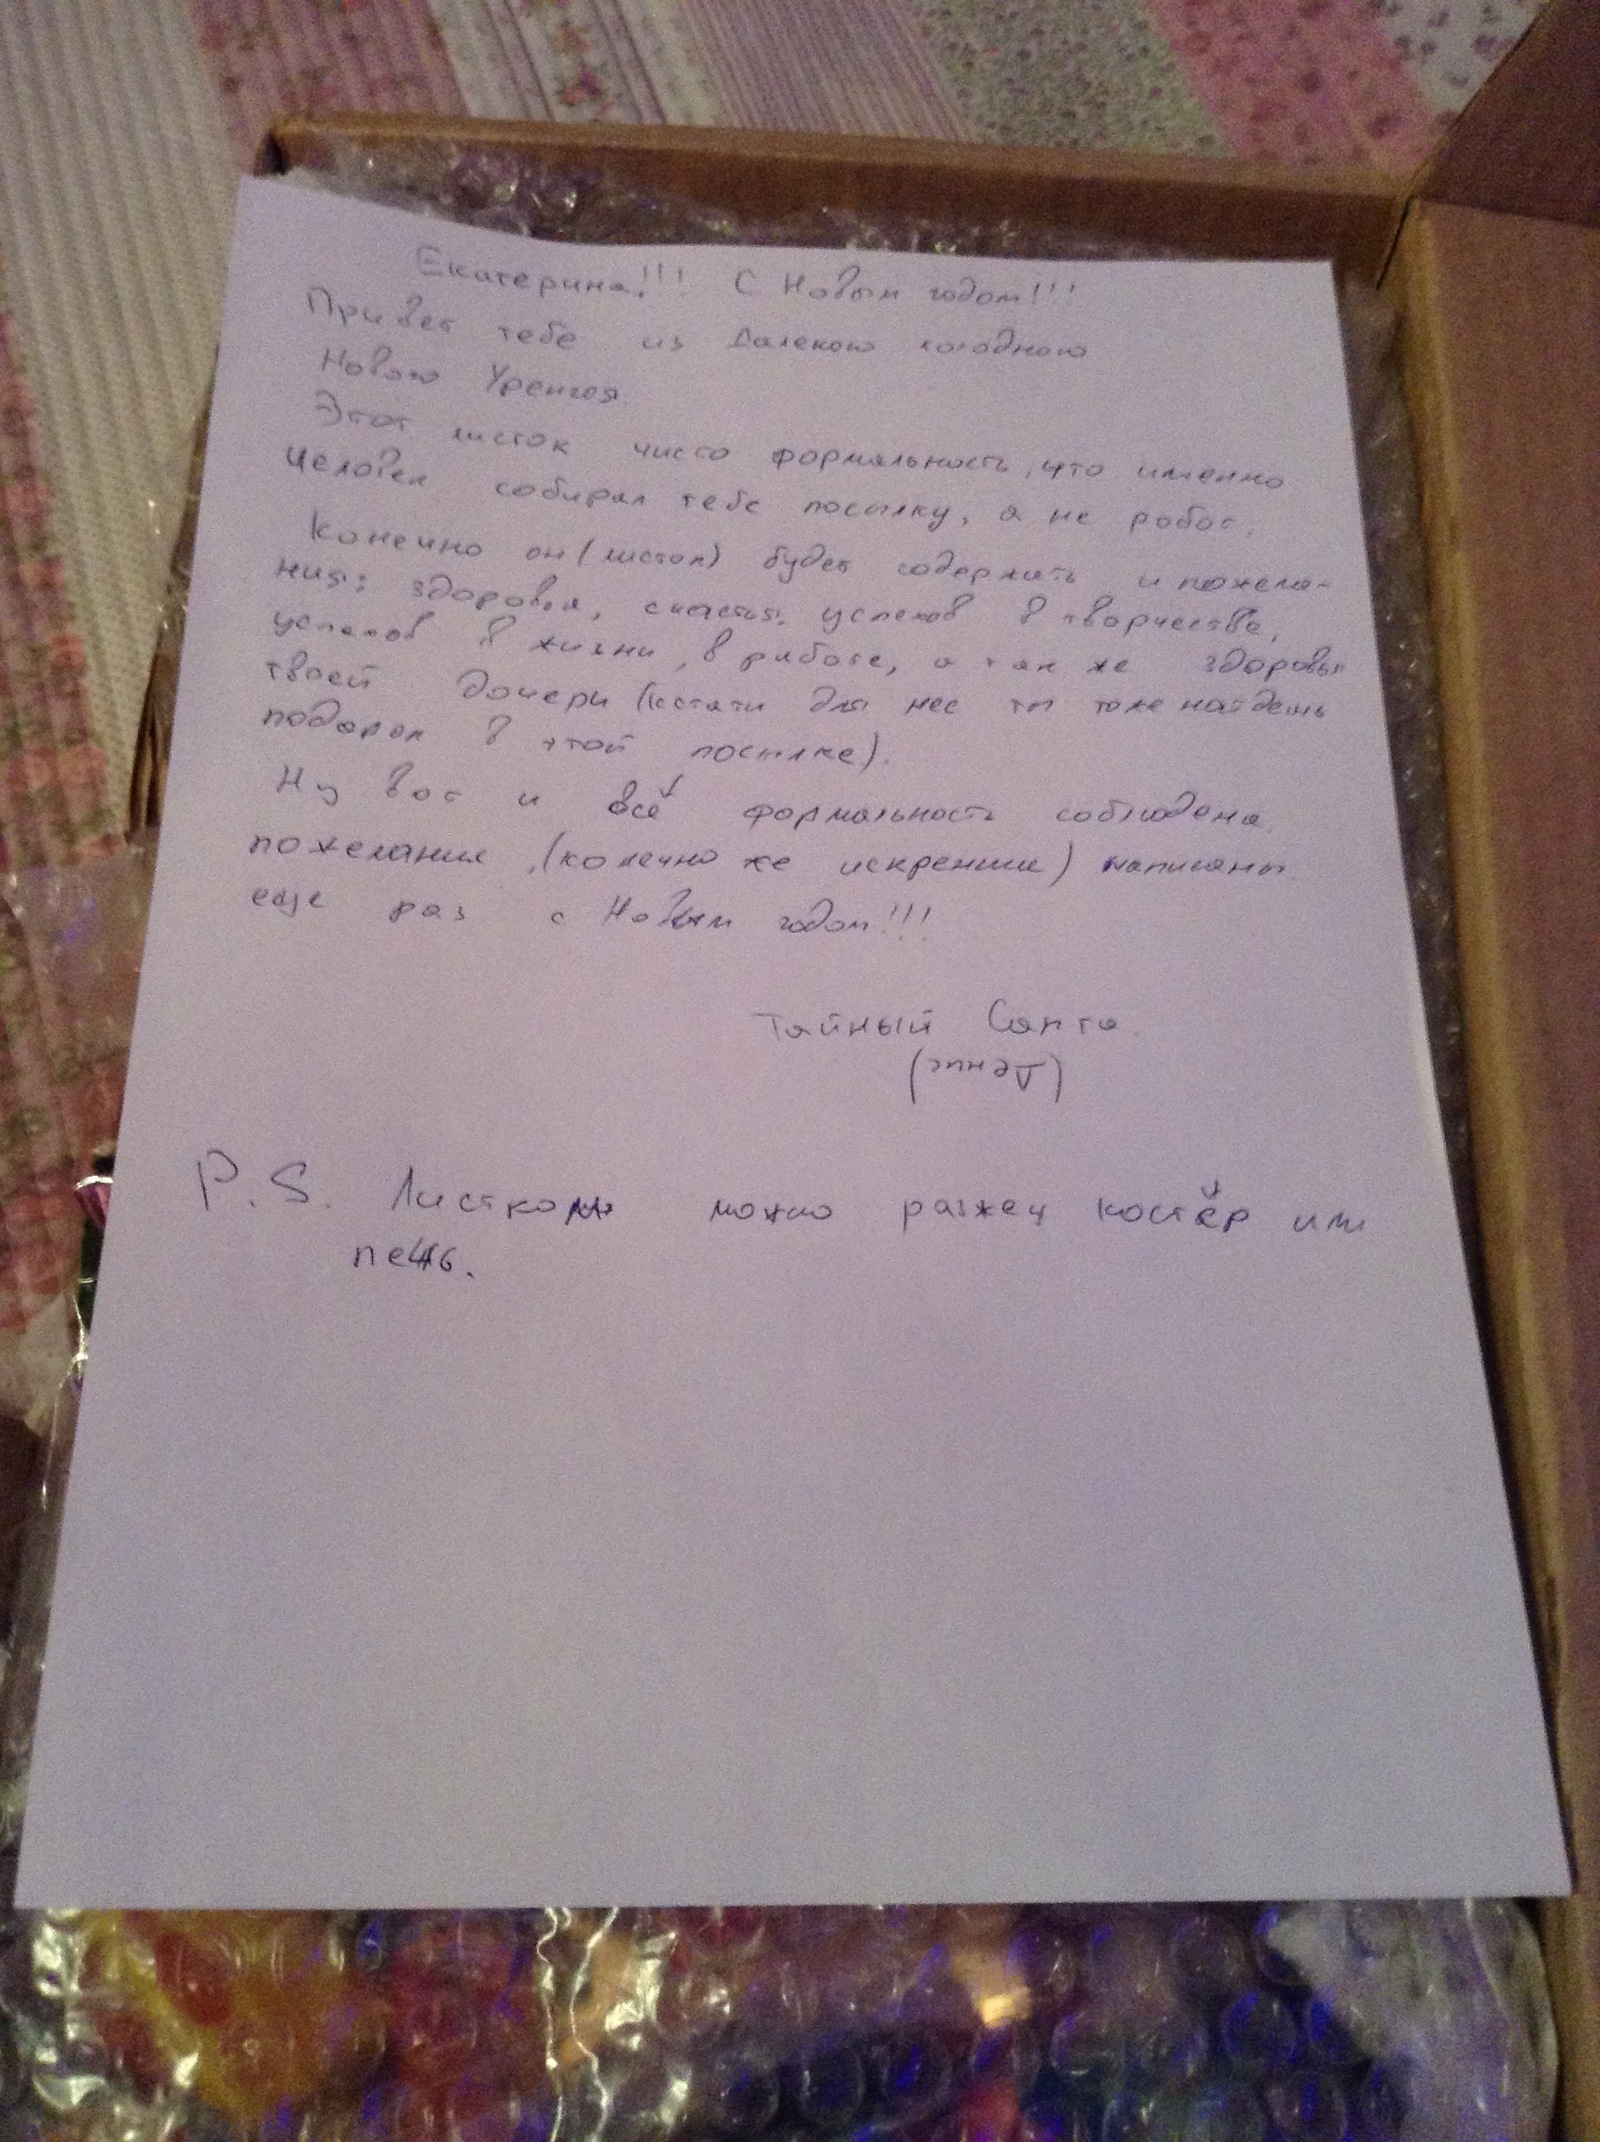 Екатерина!!! С Новым годом!!!
Привет тебе из далекого холодного
Нового Уренгоя
Этот листок чисто формальность, что именно
человек собирал тебе посылку, а не робот.
Конечно он (листок) будет содержать и пожела-
ния: здоровья, счастья, успехов в творчестве,
успехов в жизни, в работе, а так же здоровья
твоей дочери (кстати для нее ты тоже найдешь
подарок в этой посылке).
Ну вот и всё формальность соблюдена.
пожелания, (конечно же искренние) написаны.
еще раз с Новым годом!!!
Тайный Санта.
(Денис)
P.S. Листком можно разжеч костёр или
печь.